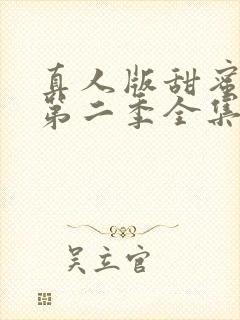 真人版甜蜜
第二季全集
吴立官